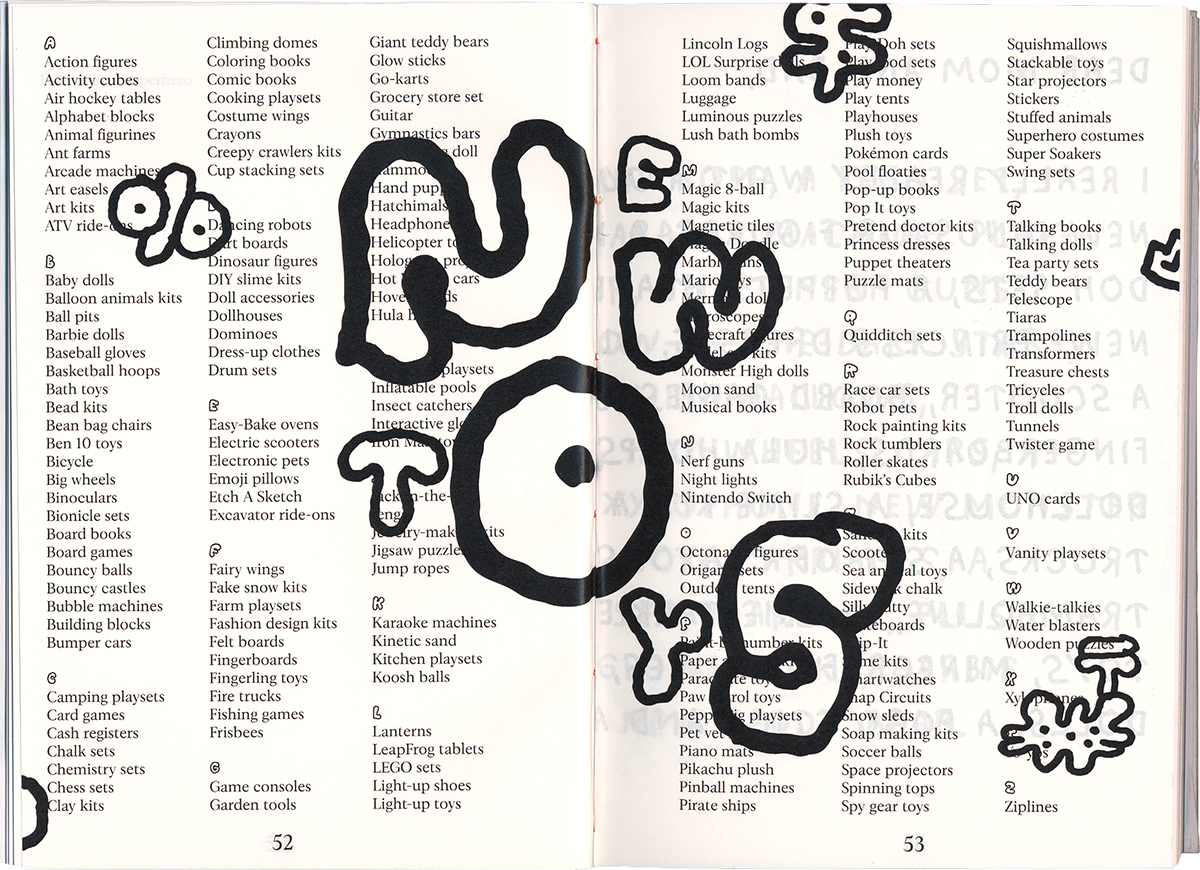 A
Action figures
Activity cubes
Air hockey tables
Alphabet blocks
Animal figurines
Ant farms
Arcade machines
Art easels
Art kits
ATV ride-ons
B
Baby dolls
Balloon animals kits
Ball pits
Barbie dolls
Baseball gloves
Basketball hoops
Bath toys
Bead kits
Bean bag chairs
Ben 10 toys
Bicycle
Big wheels
Binoculars
Bionicle sets
Board books
Board games
Bouncy balls
Bouncy castles
Bubble machines
Building blocks
Bumper cars
C
Camping playsets
Card games
Cash registers
Chalk sets
Chemistry sets
Chess sets
Clay kits
Climbing domes
Coloring books
Comic books
Cooking playsets
Costume wings
Crayons
Creepy crawlers kits
Cup stacking sets
Dancing robots
Dart boards
Dinosaur figures
DIY slime kits
Doll accessories
Dollhouses
Dominoes
Dress-up clothes
Drum sets
E
Easy-Bake ovens
Electric scooters
Electronic pets
Emoji pillows
Etch A Sketch
Excavator ride-ons
F
Fairy wings
Fake snow kits
Farm playsets
Fashion design kits
Felt boards
Fingerboards
Fingerling toys
Fire trucks
Fishing games
Frisbees
G
Game consoles
Garden tools
Giant teddy bears
Glow sticks
Go-karts
Grocery store set
Guitar
Gymnastics bars
doll
Hand puppets
Hatchimals
Headphones
Helicopter toys
Hologram
Hot cars
Hula
playsets
Inflatable pools
Insect catchers
Interactive
Iron Man toys
Jewelry-making kits
Jigsaw puzzles
Jump ropes
K
Karaoke machines
Kinetic sand
Kitchen playsets
Koosh balls
L
Lanterns
LeapFrog tablets
LEGO sets
Light-up shoes
Light-up toys
52
NEW
TOYS
Lincoln Logs
LOL Surprise dolls
Loom bands
Luggage
Luminous puzzles
Lush bath bombs
M
Magic 8-ball
Magic kits
Magnetic tiles
Magna Doodle
Marble runs
Mario toys
Mermaid dolls
Microscopes
Minecraft figures
Model kits
Monster High dolls
Moon sand
Musical books
N
Nerf guns
Night lights
Nintendo Switch
O
Octonauts figures
Origami sets
Outdoor tents
P
Paint-by-number kits
Paper
Parachute toys
Paw Patrol toys
Peppa Pig playsets
Pet vet
Piano mats
Pikachu plush
Pinball machines
Pirate ships
Play-Doh sets
Play food sets
Play money
Play tents
Playhouses
Plush toys
Pokémon cards
Pool floaties
Pop-up books
Pop It toys
Pretend doctor kits
Princess dresses
Puppet theaters
Puzzle mats
Q
Quidditch sets
R
Race car sets
Robot pets
Rock painting kits
Rock tumblers
Roller skates
Rubik's Cubes
kits
Scooters
Sea animal toys
Sidewalk chalk
Silly Putty
Skateboards
Skip-It
Slime kits
Smartwatches
Snap Circuits
Snow sleds
Soap making kits
Soccer balls
Space projectors
Spinning tops
Spy gear toys
Squishmallows
Stackable toys
Star projectors
Stickers
Stuffed animals
Superhero costumes
Super Soakers
Swing sets
T
Talking books
Talking dolls
Tea party sets
Teddy bears
Telescope
Tiaras
Trampolines
Transformers
Treasure chests
Tricycles
Troll dolls
Tunnels
Twister game
U
UNO cards
V
Vanity playsets
W
Walkie-talkies
Water blasters
Wooden puzzles
X
Xylophones
Z
Ziplines
53